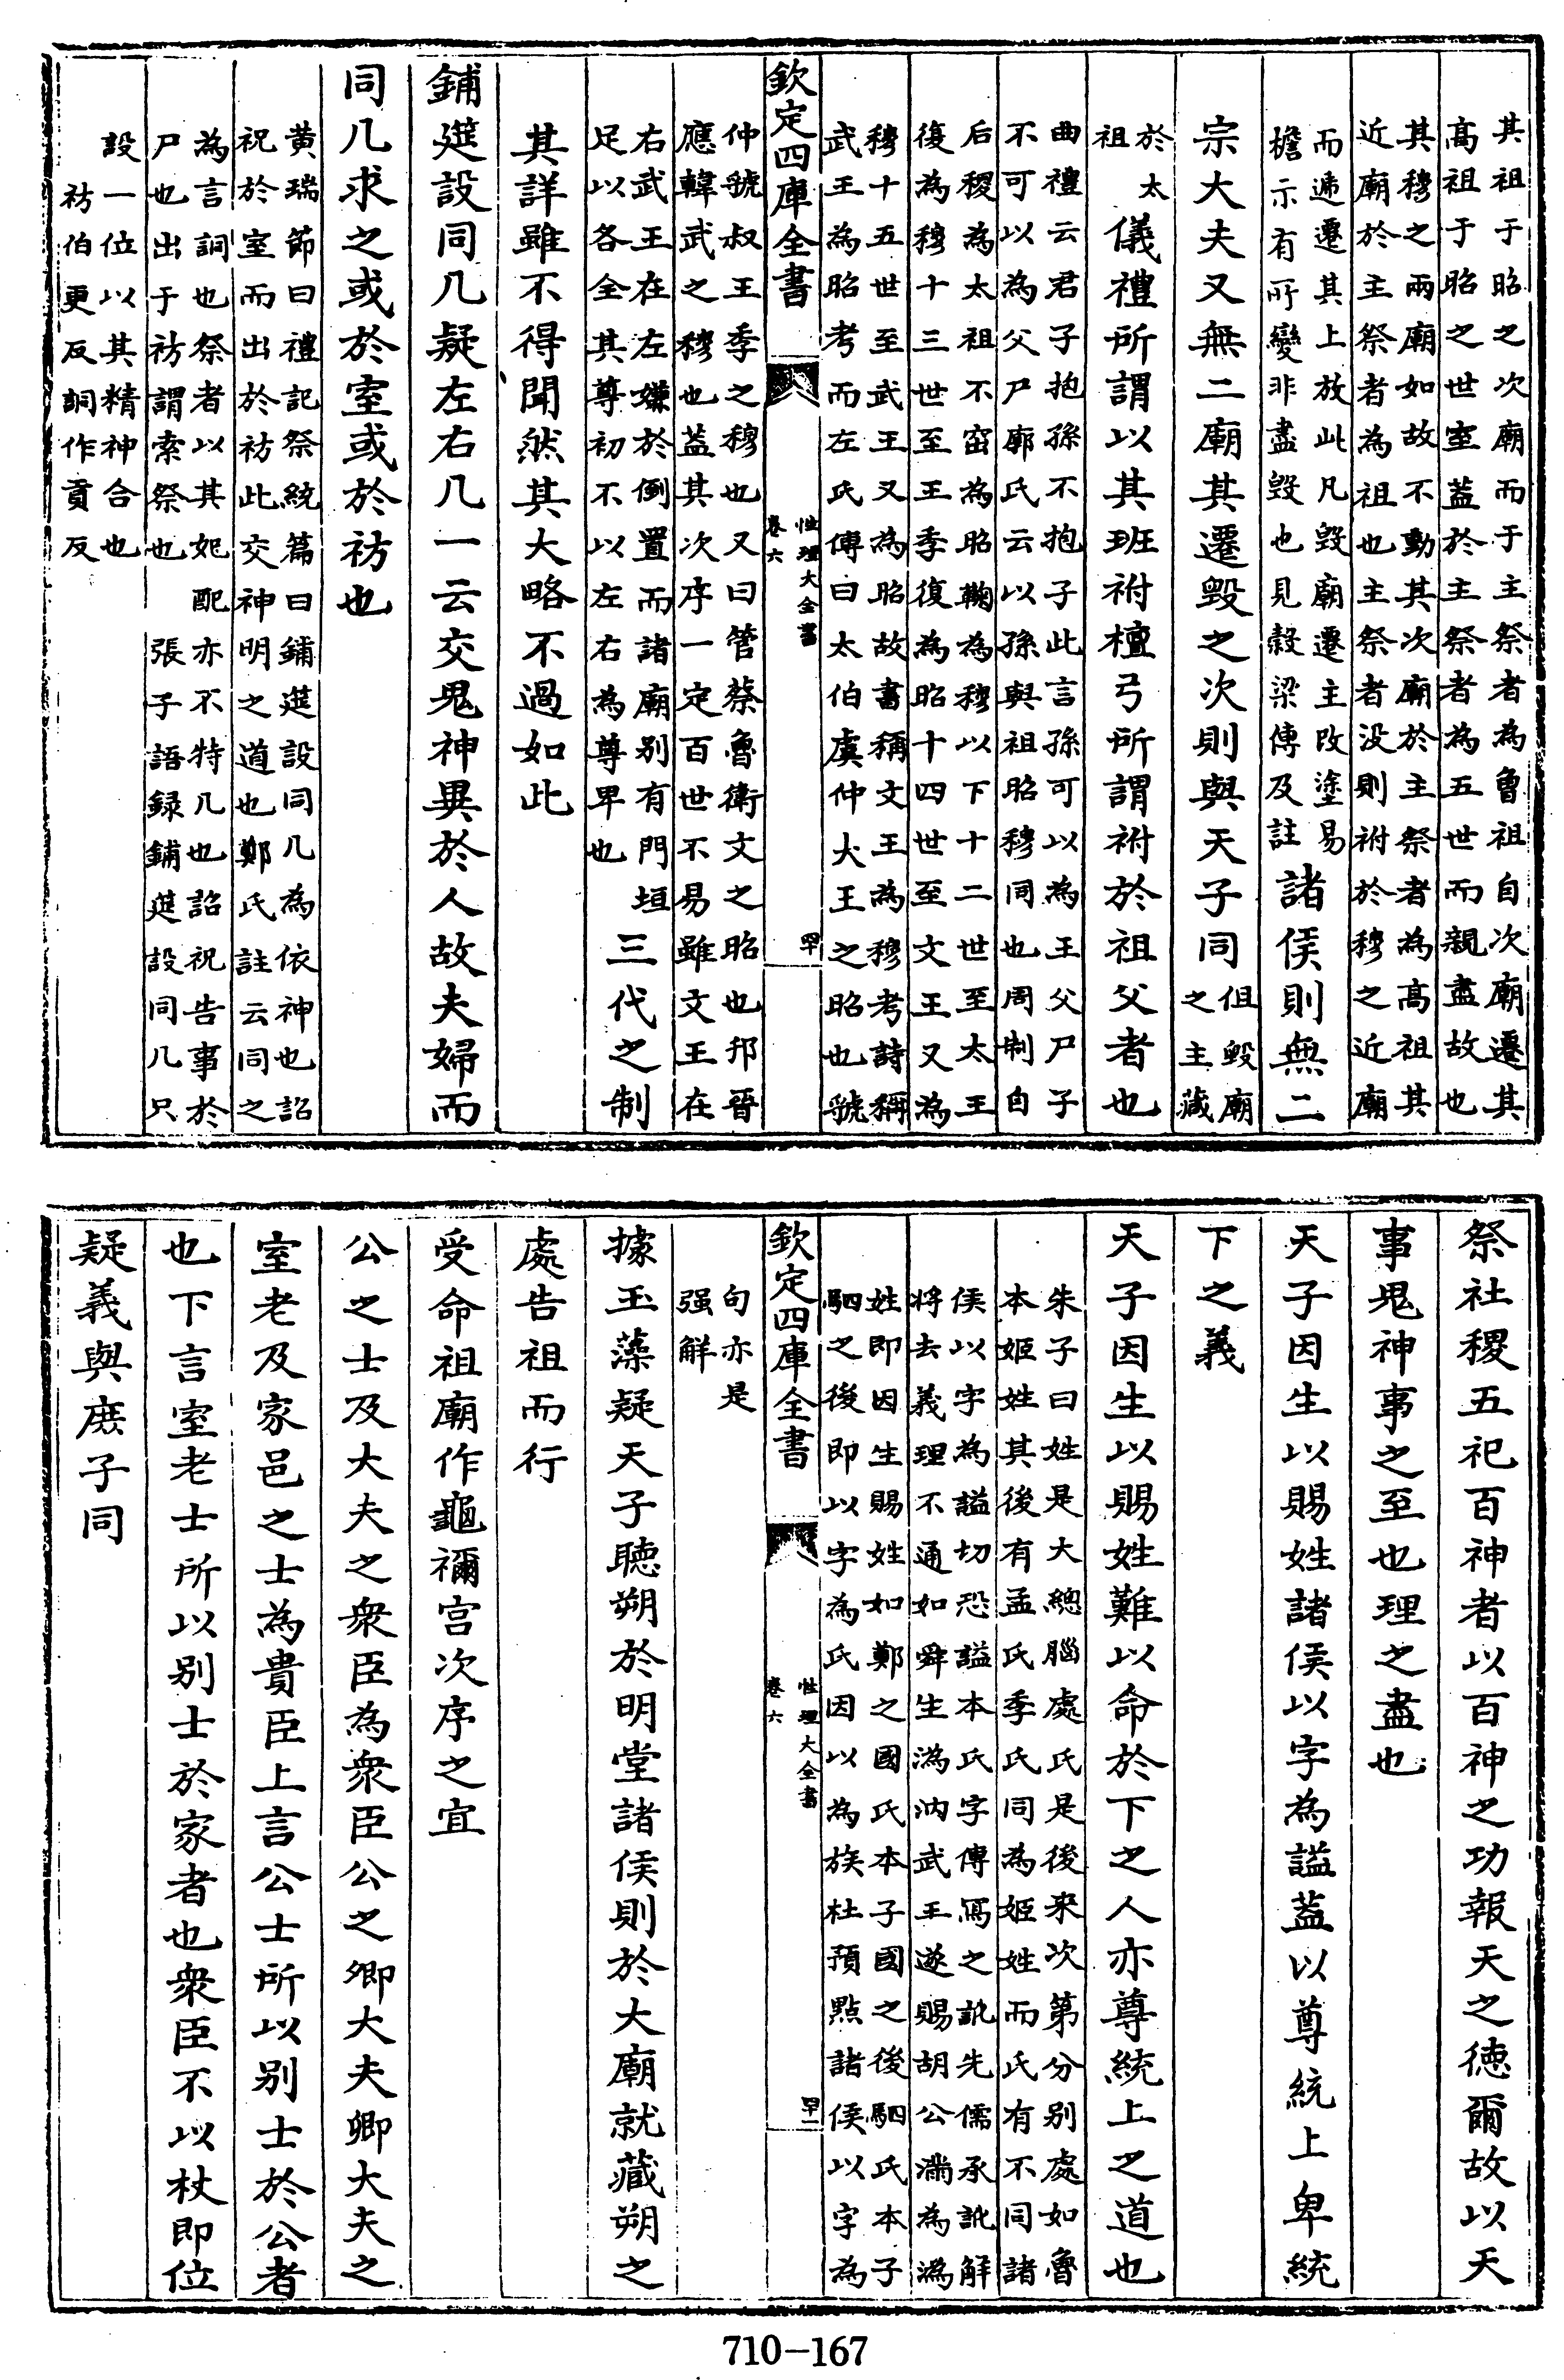 其祖于昭之次廟而于主祭者為魯祖自次廟遷其
高祖于昭之世室蓋於主祭者為五世而親盡故也
其穆之兩廟如故不動其次廟於主祭者為高祖其
近廟於主祭者為祖也主祭者没則祔於穆之近廟
而遞遷其上放此凡毁廟遷主改塗易
檐示有所變非盡毁也見穀梁傳及註
諸侯則無二
宗大夫又無二廟其遷毁之次則與天子同
但毁廟
之主藏
於太
祖
儀禮所謂以其班祔檀弓所謂祔於祖父者也
曲禮云君子抱孫不抱子此言孫可以為王父尸子
不可以為父尸廓氏云以孫與祖昭穆同也周制自
后稷為太祖不窋為昭鞠為穆以下十二世至太王
復為穆十三世至王季復為昭十四世至文王又為
穆十五世至武王又為昭故書稱文王為穆考詩稱
武王為昭考而左氏傳曰太伯虞仲大王之昭也虢
欽定四庫全書
性理大全書
卷六
罕
仲虢叔王季之穆也又曰管蔡魯衛文之昭也邘晉
應韓武之穆也蓋其次序一定百世不易雖文王在
右武王在左嫌於倒置而諸廟别有門垣
足以各全其尊初不以左右為尊卑也
三代之制
其詳雖不得聞然其大略不過如此
鋪筵設同几疑左右几一云交鬼神異於人故夫婦而
同几求之或於室或於祊也
黄瑞節曰禮記祭統篇曰鋪筵設同几為依神也詔
祝於室而出於祊此交神明之道也鄭氏註云同之
為言詞也祭者以其妃配亦不特几也詔祝告事於
尸也出于祊謂索祭也張子語録鋪筵設同几只
設一位以其精神合也
祊伯更反詞作貢反
祭社稷五祀百神者以百神之功報天之徳爾故以天
事鬼神事之至也理之盡也
天子因生以賜姓諸侯以字為諡蓋以尊統上卑統
下之義
天子因生以賜姓難以命於下之人亦尊統上之道也
朱子曰姓是大總腦處氏是後来次第分别處如魯
本姬姓其後有孟氏季氏同為姬姓而氏有不同諸
侯以字為諡切恐諡本氏字傳寫之訛先儒承訛解
将去義理不通如舜生溈汭武王遂賜胡公滿為溈
姓即因生賜姓如鄭之國氏本子國之後駟氏本子
駟之後即以字為氏因以為族杜預點諸侯以字為
欽定四庫全書
性理大全書
卷六
罕一
句亦是
强解
據玉藻疑天子聴朔於明堂諸侯則於大廟就藏朔之
處告祖而行
受命祖廟作龜禰宫次序之宜
公之士及大夫之衆臣為衆臣公之卿大夫卿大夫之
室老及家邑之士為貴臣上言公士所以别士於公者
也下言室老士所以别士於家者也衆臣不以杖即位
疑義與庶子同
710-167